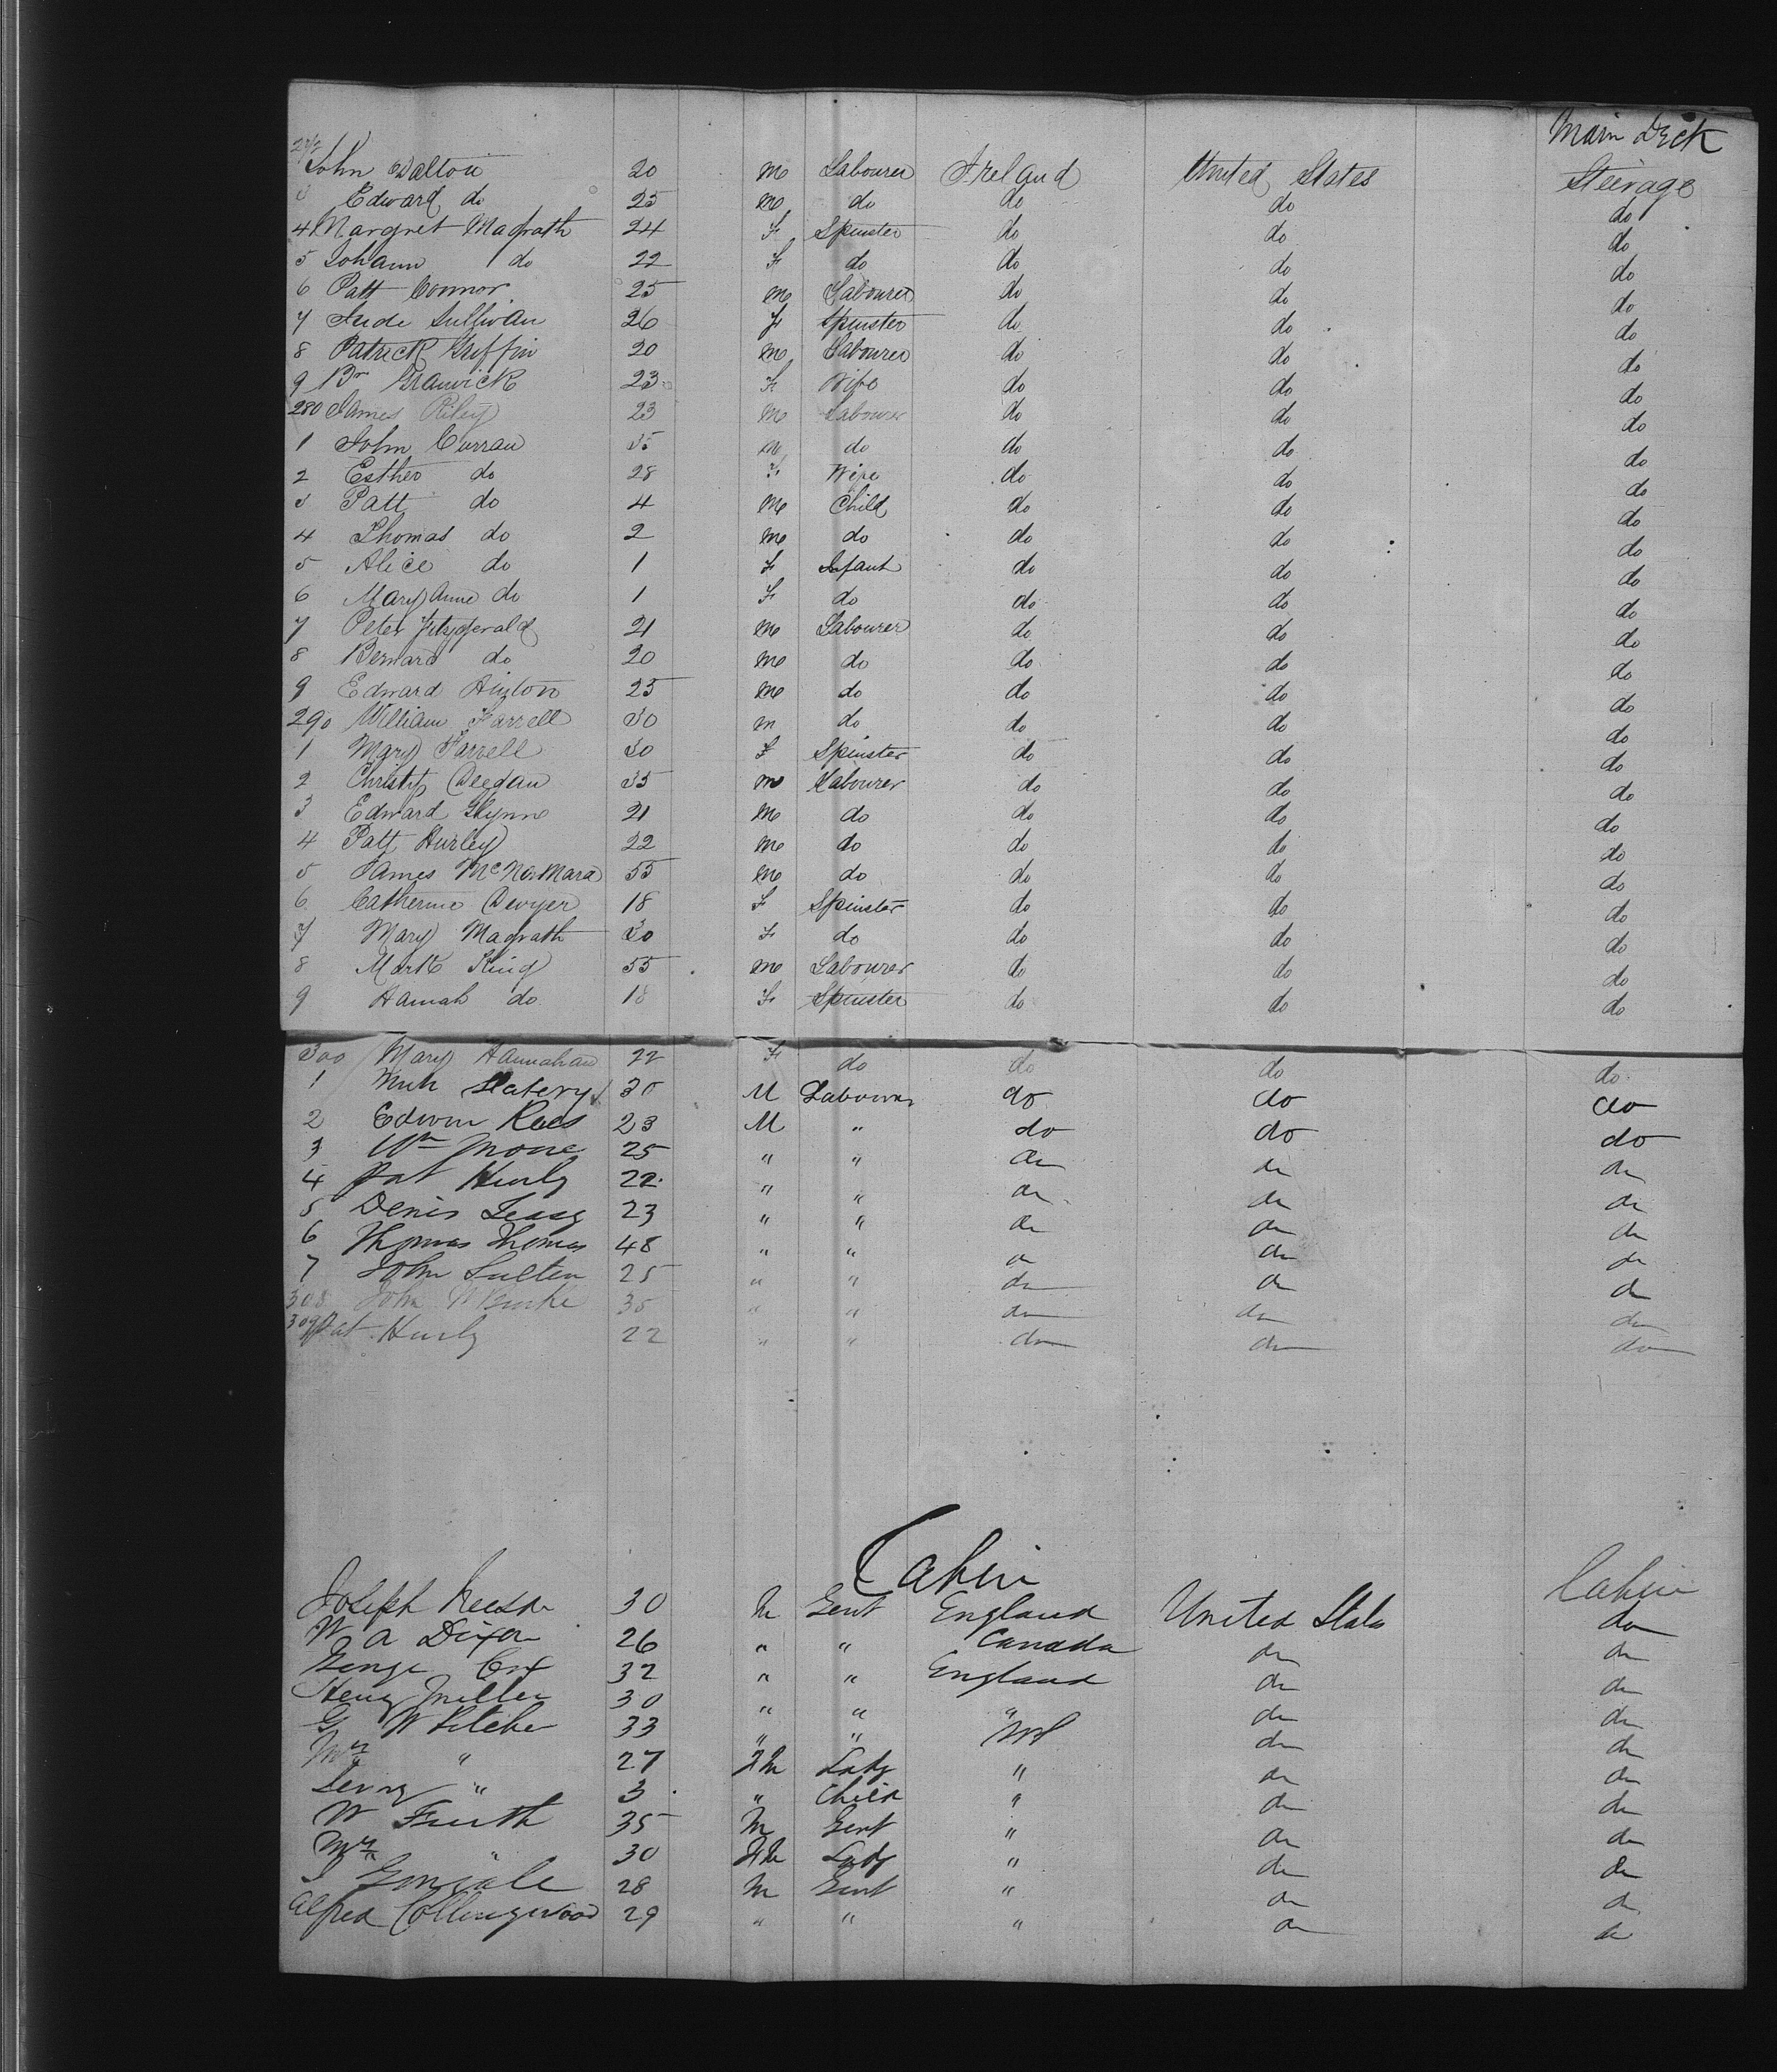 Main Deck
272 John Walton 20 m Labourer Ireland United States Steerage
3 Edward do 25 m do do do do
4 Margret Magrath 24 F Spinster do do do
5 Johann do 22 F do do do do
6 Patt Connor 25 m Labourer do do do
7 Jude Sullivan 26 F Spinster do do do
8 Patrick Griffin 20 m Labourer do do do
9 23 F Wife do do do
280 James Riley 23 m Labourer do do do
1 John Curran 35 m do do do do
2 Esther do 28 F Wife do do do
3 Patt do 4 m Child do do do
4 Thomas do 2 m do do do do
5 Alice do 1 F Infant do do do
6 Mary Anne do 1 F do do do do
7 Peter Fitzgerald 21 m Labourer do do do
8 Bernard do 20 m do do do do
9 Edward Hinton 25 m do do do do
290 William Farrell 30 m do do do do
1 Mary Farrell 30 F Spinster do do do
2 Christy Deedan 35 m Labourer do do do
3 Edward Glynne 21 m do do do do
4 Patt Hurley 22 m do do do do
5 James McNaMara 55 m do do do do
6 Catherine Dwyer 18 F Spinster do do do
7 Mary Magrath 30 F do do do do
8 Mark King 55 m Labourer do do do
9 Hannah do 18 F Spinster do do do
300 Mary Hannahan 22 F do do do do
1 Slatery 30 M Labourer do do do
2 Edwin Rees 23 M " do do do
3 Wm 25 " " do do do
4 Pat Hurly 22 " " do do do
5 Denis Leary 23 " " do do do
6 Thomas Thomas 48 " " do do do
7 John 25 " " do do do
308 John 35 " " do do do
309 Pat Hurly 22 " " do do do
Cabin
Joseph 30 M Gent England United States Cabin
W A Dixon 26 " " Canada do do
George Cox 32 " " England do do
Henry Miller 30 " " " do do
G W Pitcher 33 " " US do do
Mrs " 27 Lady " do do
" 3 " Child " do do
W Furth 35 M Gent " do do
Mrs " 30 Lady " do do
28 M Gent " do do
Alfred Collingwood 29 " " " do do